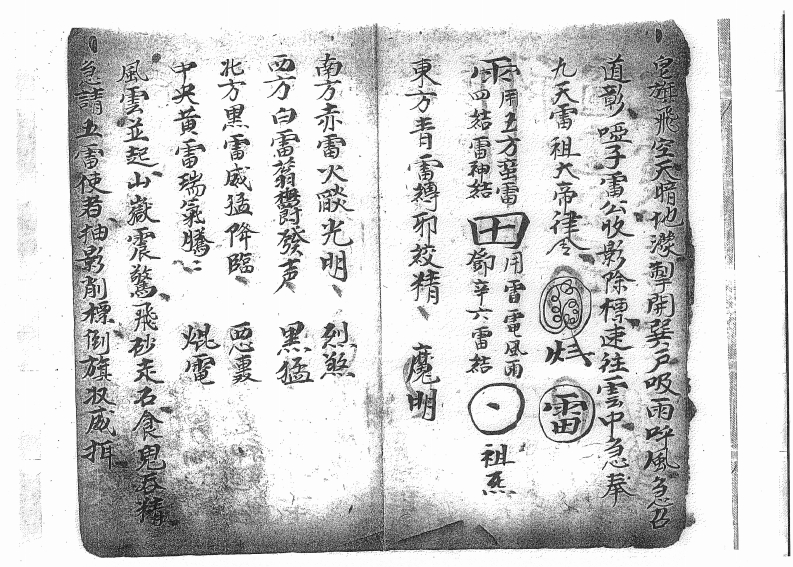 皂旗飛空天暗地濛掣開巽戶吸雨呼風急召
道彰啞子雷公收影除標速往雲中急奉
九天雷祖大帝律令 火 雷
雨 用五方蛮雷 四結雷神結 田 用雷電風雨 鄧辛六雷結 祖炁
東方青雷縛邪絞精 魔明
南方赤雷火燄光明 烈煞
四方白雷蓊欝發声 黑猛
北方黑雷威猛降臨 悪轟
中央黃雷瑞氣騰〻 焜電
風雲並起山嶽震驚飛砂走石食鬼吞精
急請五雷使者抽影削標倒旗収威